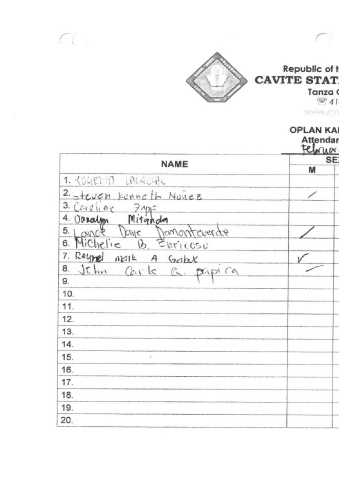 Republic of t
CAVITE STAT
Tanza C
☏ 41
OPLAN KA
Attendan
Februar
NAME
SE
M
1.
2. Steven Kenneth Nuñez
3. Caroline
4. Danalyn Miranda
5. Lance Dave Demonteverde
6. Michelle B. Enricoso
7. Reynel mark A
8. John Carlo Q. papica
9.
10.
11.
12.
13.
14.
15.
16.
17.
18.
19.
20.